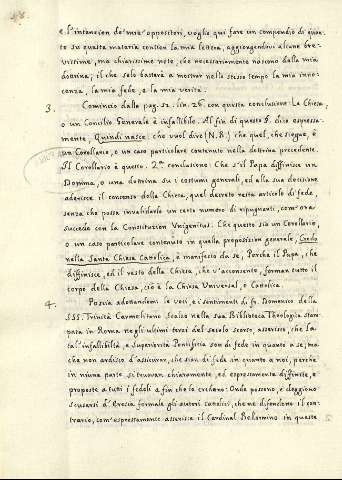 e l'intenzion de' miei oppositori, voglio qui fare un compendio di quan-
to su questa materia contien la mia lettera, aggiongendovi alcune bre-
vissime, ma chiarissime note, che necessariamente nascono dalla mia
dottrina; il che solo basterà a mostrar nello stesso tempo la mia inno-
cenza, la mia fede, e la mia verità.
3. Comincio dalla pag. 52. lin. 26. con questa conclusione. La Chiesa,
o un Concilio Generale è infallibile. Al fin di questo §. dico espressa-
mente, Quindi nasce: che vuol dire (N.B.) che quel, che siegue, è
un Corollario, o un caso particolare contenuto nella dottrina precedente.
Il Corollario è questo. 2.ª conclusione: Che s'il Papa diffinisce un
Domma, o una dottrina su i costumi generali, ed alla sua decisione
aderisce il consenso della Chiesa, quel decreto resta articolo di fede,
senza che possa invalidarlo un certo numero di ripugnanti, com'ora
succede con la Constituzion Unigenitus. Che questo sia un Corollario,
o un caso particolare contenuto in quella proposizion generale, Credo
nella Santa Chiesa Catolica, è manifesto da se, Perchè il Papa, che
diffinisce, ed il resto della Chiesa, che v'acconsente, forman tutto il
corpo della Chiesa, ciò è la Chiesa Universal, o Catolica.
4. Poscia adottandomi le voci, e i sentimenti di fr. Domenico della
SSS. Trinità Carmelitano Scalzo nella sua Biblioteca Theologica stam-
pata in Roma negli ultimi terzi del secolo scorso, asserisco, che la
tal'infallibilità, e Superiorità Pontificia son di fede in quanto a se; ma
che non ardisco d'assicurar, che sian di fede in quanto a noi, perchè
in niuna parte si trovan chiaramente, ed espressamente diffinite, e
proposte a tutti i fedeli a fin che le credano: Onde possono, e deggiono
scusarsi d'Eresia formale gli autori catolici, che ne difendono il con-
trario, com'espressamente asserisce il Cardinal Belarmino in queste